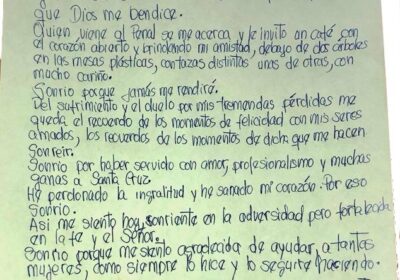 que Dios me bendice.
Quien viene al Penal se me acerca, y le invito un café con
el corazón abierto y brindando mi amistad, debajo de dos árboles
en las mesas plásticas, con tazas distintas unas de otras, con
mucho cariño.
Sonrío porque jamás me rendiré.
Del sufrimiento y el duelo por mis tremendas pérdidas me
queda el recuerdo de los momentos de felicidad con mis seres
amados, los recuerdos de los momentos de dicha que me hacen
sonreir.
Sonrío por haber servido con amor, profesionalismo y muchas
ganas a Santa Cruz.
He perdonado la ingratitud y he sanado mi corazón. Por eso
sonrío.
Así me siento hoy, sonriente en la adversidad pero fortalecida
en la fe y el Señor.
Sonrío porque me siento agradecida de ayudar, a tantas
mujeres, como siempre lo hice y lo seguiré haciendo.